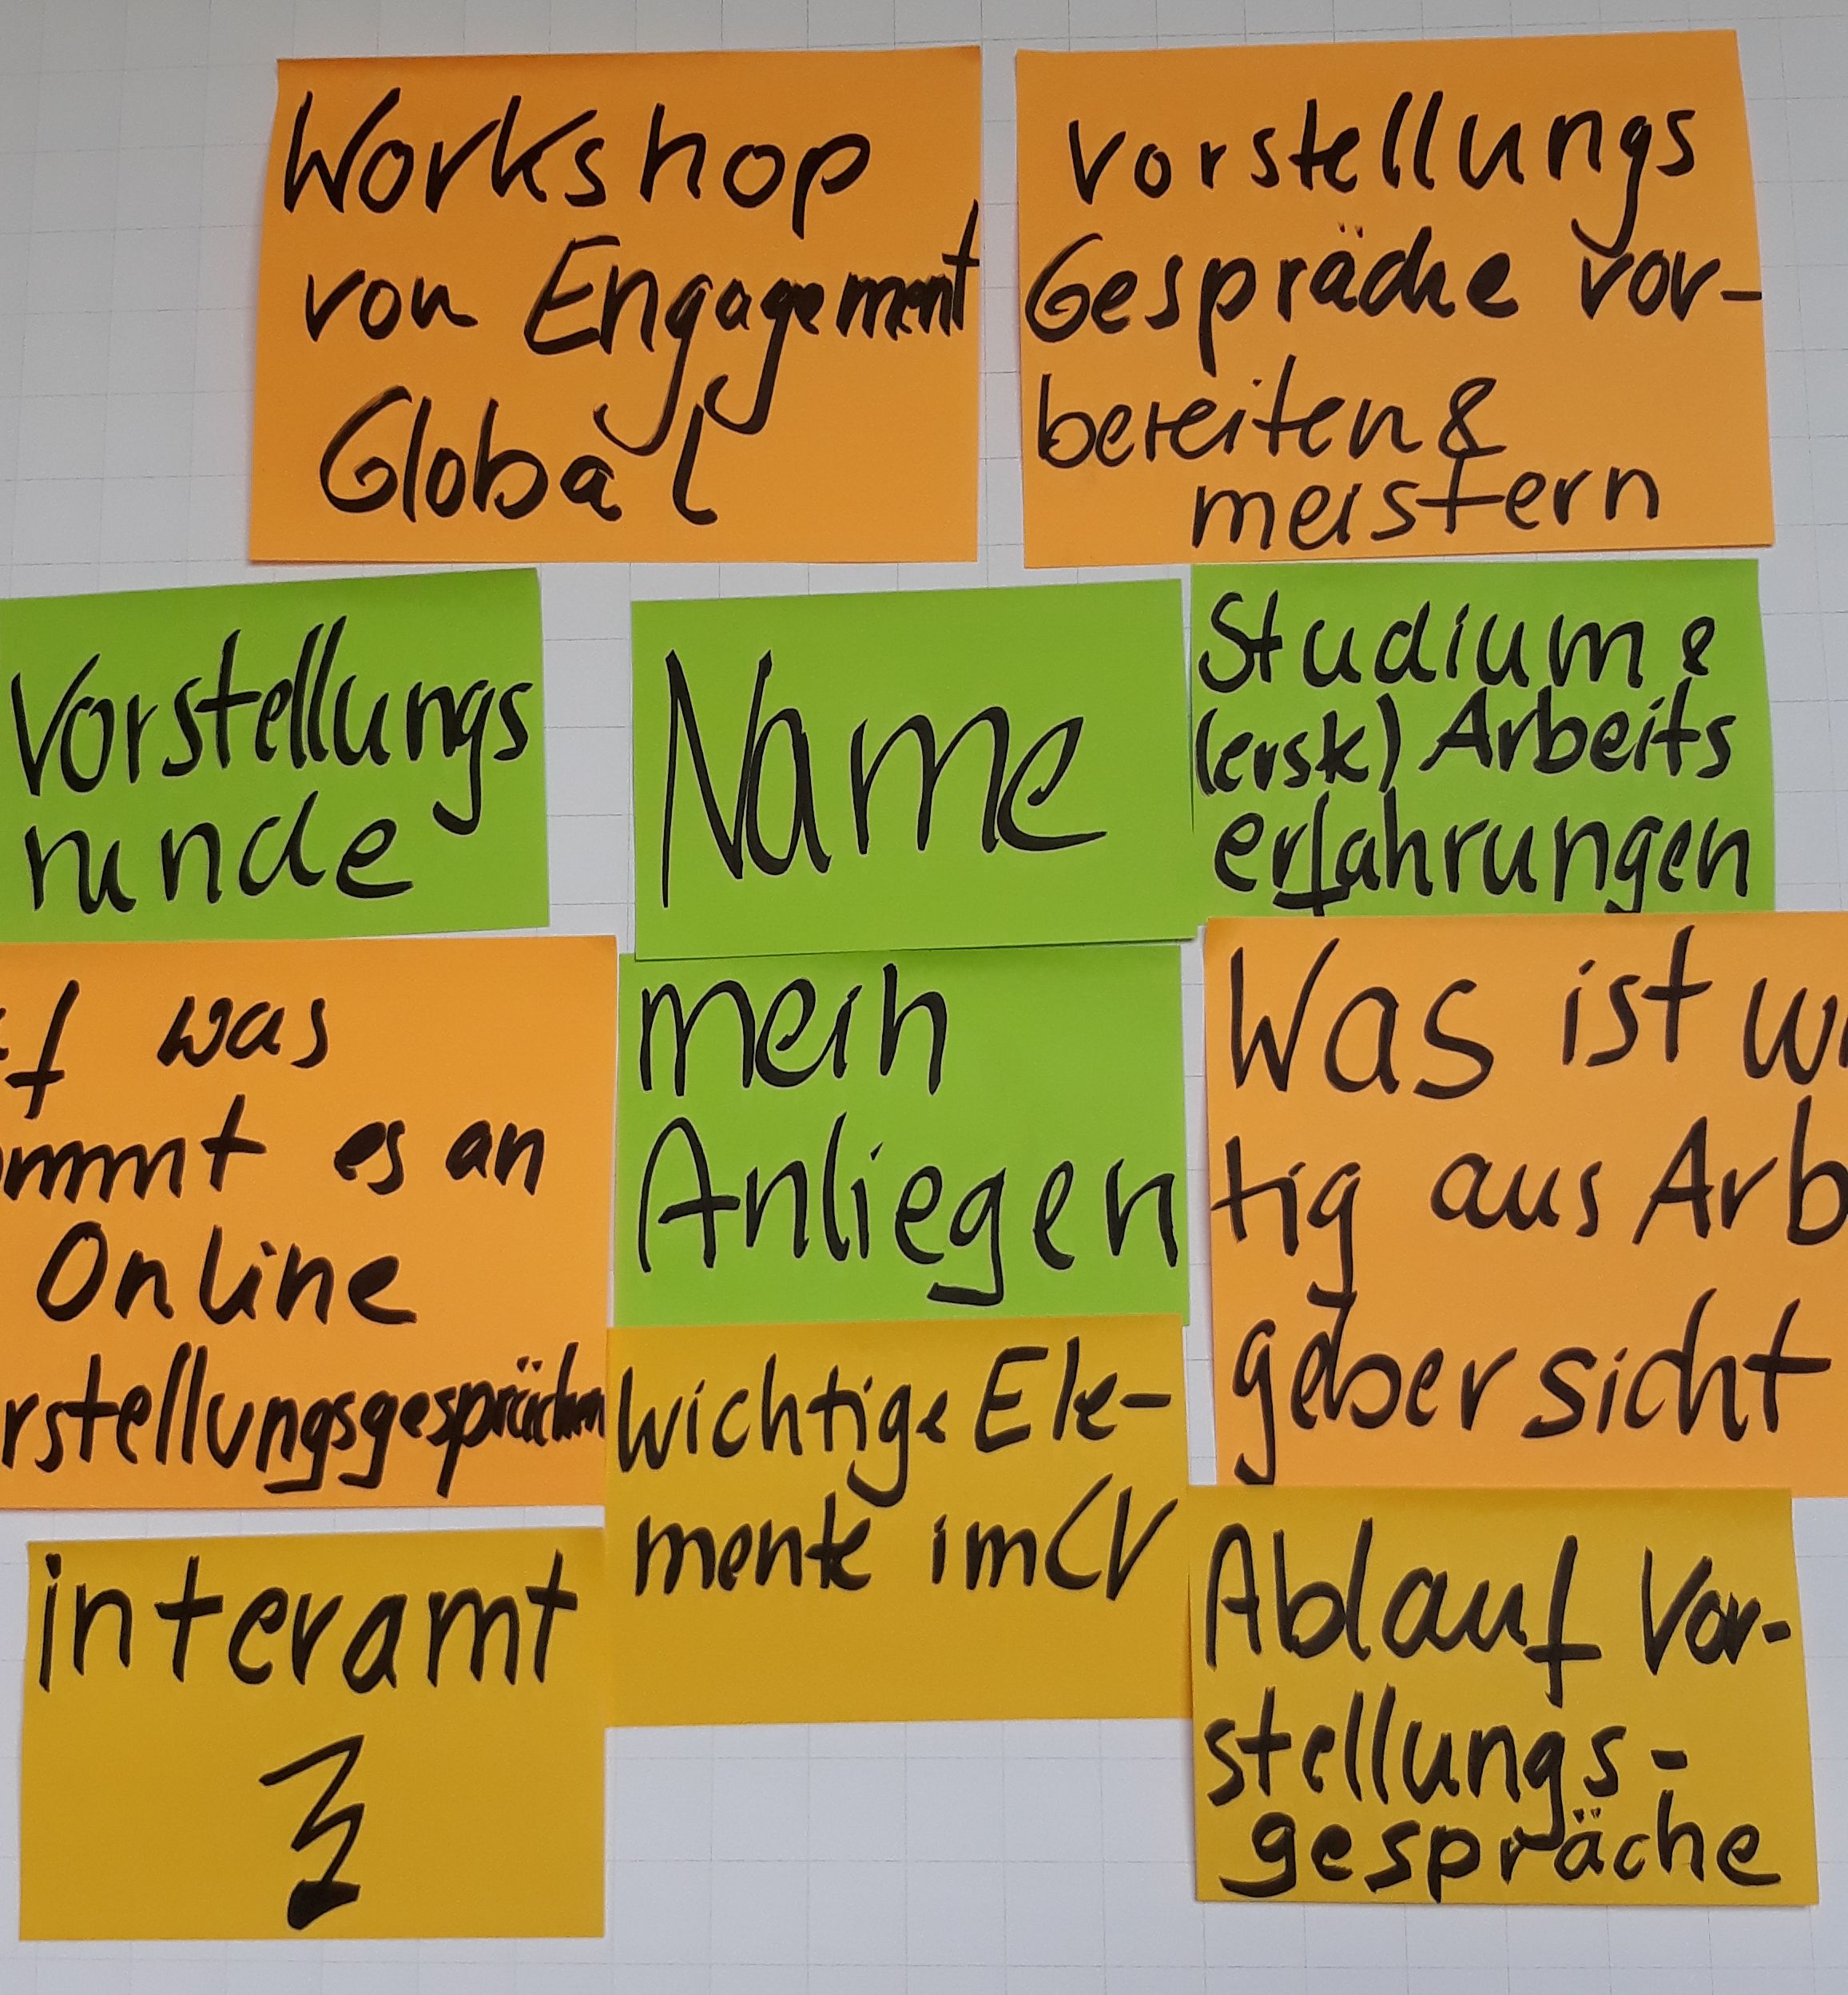 Workshop
von Engagement
Global
Vorstellungs
Gespräche vor-
bereiten &
meistern
Vorstellungs
runde
Name
Studium &
(ersk) Arbeits
erfahrungen
f was
mmt es an
Online
rstellungsgesprächen
mein
Anliegen
Was ist wi
tig aus Arb
gebersicht
wichtige Ele-
mente im CV
interamt
Ablauf Vor-
stellungs-
gespräche